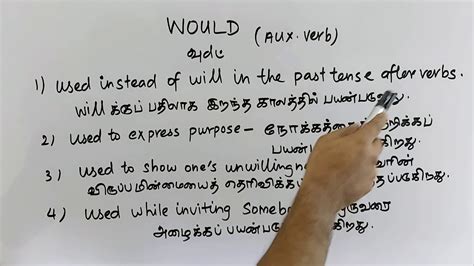 WOULD (AUX. verb)
வுட்
1) used instead of will in the past tense after verbs.
will க்குப் பதிலாக இறந்த காலத்தில்
2) used to express purpose - நோக்கத்தை
கிறது.
3) used to show one's
விருப்பமின்மையைத் தெரிவிக்கப்
4) used while inviting
அழைக்கப் பயன்படு கிறது.